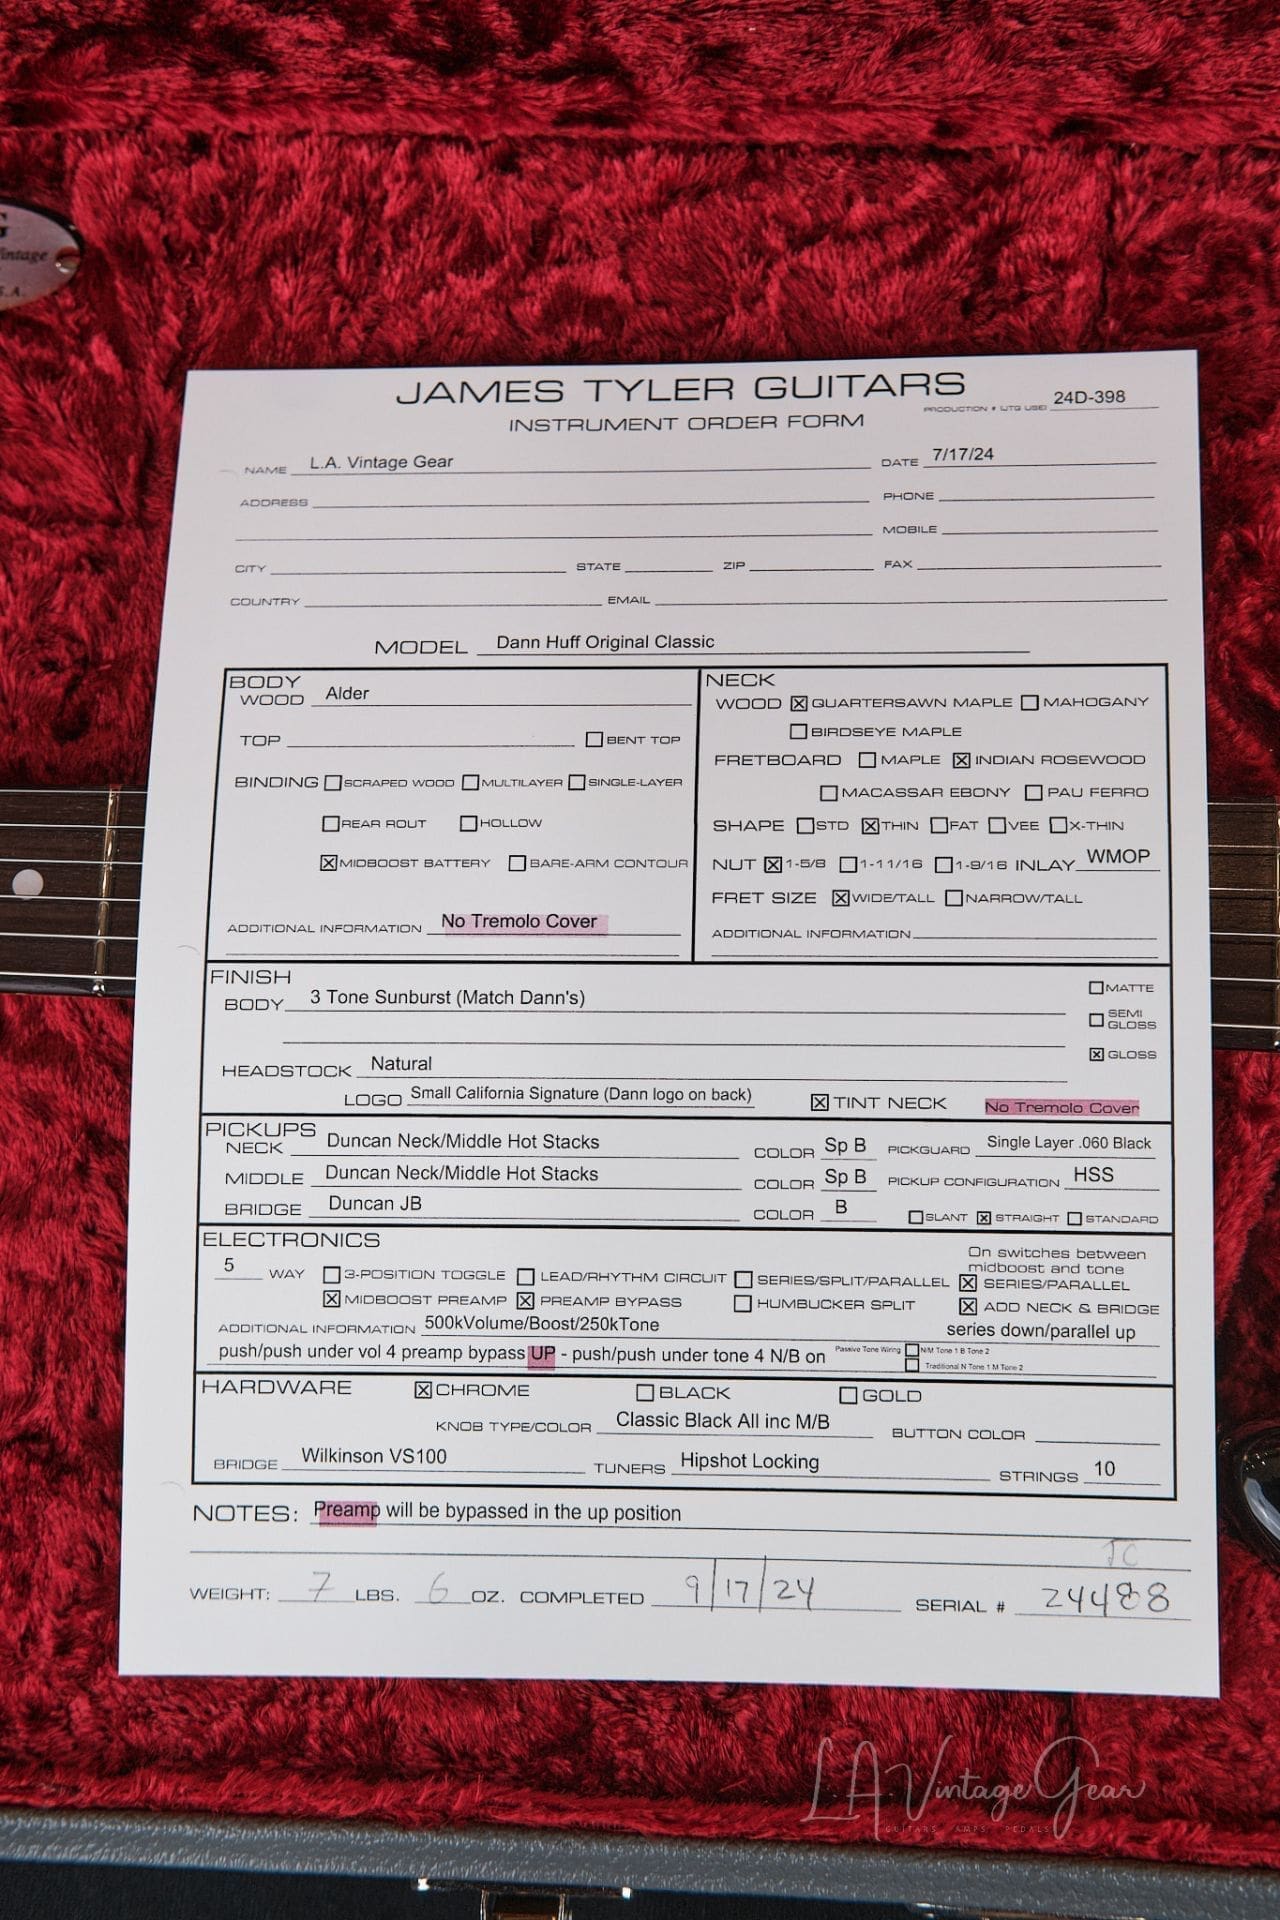 G
intage
S.A.
JAMES TYLER GUITARS
INSTRUMENT ORDER FORM
PRODUCTION # (JTG USE) 24D-398
NAME L.A. Vintage Gear DATE 7/17/24
ADDRESS PHONE
MOBILE
CITY STATE ZIP FAX
COUNTRY EMAIL
MODEL Dann Huff Original Classic
BODY
WOOD Alder
TOP ☐ BENT TOP
BINDING ☐ SCRAPED WOOD ☐ MULTILAYER ☐ SINGLE-LAYER
☐ REAR ROUT ☐ HOLLOW
☒ MIDBOOST BATTERY ☐ BARE-ARM CONTOUR
ADDITIONAL INFORMATION No Tremolo Cover
NECK
WOOD ☒ QUARTERSAWN MAPLE ☐ MAHOGANY
☐ BIRDSEYE MAPLE
FRETBOARD ☐ MAPLE ☒ INDIAN ROSEWOOD
☐ MACASSAR EBONY ☐ PAU FERRO
SHAPE ☐ STD ☒ THIN ☐ FAT ☐ VEE ☐ X-THIN
NUT ☒ 1-5/8 ☐ 1-11/16 ☐ 1-9/16 INLAY WMOP
FRET SIZE ☒ WIDE/TALL ☐ NARROW/TALL
ADDITIONAL INFORMATION
FINISH
BODY 3 Tone Sunburst (Match Dann's) ☐ MATTE
☐ SEMI GLOSS
☒ GLOSS
HEADSTOCK Natural
LOGO Small California Signature (Dann logo on back) ☒ TINT NECK No Tremolo Cover
PICKUPS
NECK Duncan Neck/Middle Hot Stacks COLOR Sp B PICKGUARD Single Layer .060 Black
MIDDLE Duncan Neck/Middle Hot Stacks COLOR Sp B PICKUP CONFIGURATION HSS
BRIDGE Duncan JB COLOR B ☐ SLANT ☒ STRAIGHT ☐ STANDARD
ELECTRONICS
On switches between
midboost and tone
5 WAY ☐ 3-POSITION TOGGLE ☐ LEAD/RHYTHM CIRCUIT ☐ SERIES/SPLIT/PARALLEL ☒ SERIES/PARALLEL
☒ MIDBOOST PREAMP ☒ PREAMP BYPASS ☐ HUMBUCKER SPLIT ☒ ADD NECK & BRIDGE
ADDITIONAL INFORMATION 500kVolume/Boost/250kTone series down/parallel up
push/push under vol 4 preamp bypass UP - push/push under tone 4 N/B on Passive Tone Wiring ☐ N/M Tone 1 B Tone 2
☐ Traditional N Tone 1 M Tone 2
HARDWARE ☒ CHROME ☐ BLACK ☐ GOLD
KNOB TYPE/COLOR Classic Black All inc M/B BUTTON COLOR
BRIDGE Wilkinson VS100 TUNERS Hipshot Locking STRINGS 10
NOTES: Preamp will be bypassed in the up position
JC
WEIGHT: 7 LBS. 6 OZ. COMPLETED 9/17/24 SERIAL # 24488
L.A. Vintage Gear
GUITARS AMPS PEDALS